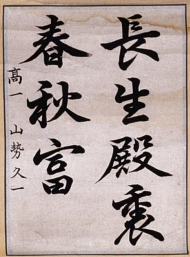 長生殿裏
春秋富
高一 山勢久一